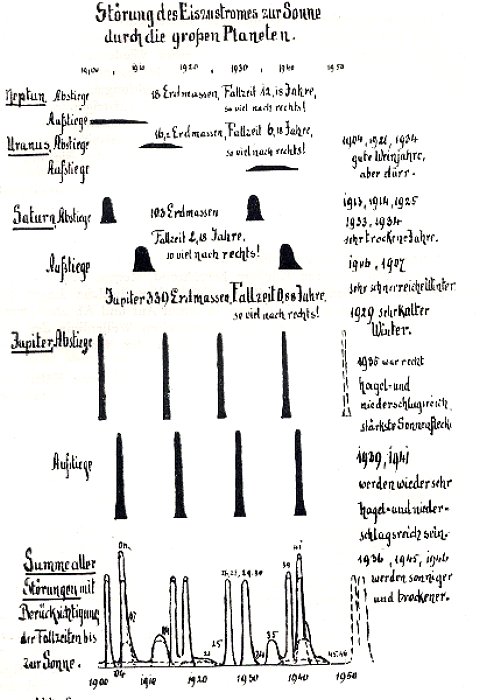 Störung des Eiszustromes zur Sonne
durch die großen Planeten.
1900 1910 1920 1930 1940 1950
Neptun, Abstiege
18 Erdmassen, Fallzeit 12,15 Jahre,
so viel nach rechts!
Aufstiege
Uranus, Abstiege
Erdmassen, Fallzeit Jahre,
so viel nach rechts!
Aufstiege
1904, 1921, 1934
gute Weinjahre,
aber dürr.
Saturn, Abstiege
103 Erdmassen
1913, 1914, 1925
1933, 1934
sehr trockene Jahre.
Fallzeit 2,18 Jahre,
so viel nach rechts!
Aufstiege
1906, 1907
sehr schneereiche Winter
Jupiter 339 Erdmassen, Fallzeit 0,88 Jahre,
so viel nach rechts!
1929 sehr kalter
Winter.
Jupiter, Abstiege
war recht
hagel- und
niederschlagsreich
stärkste Sonnenfleck
Aufstiege
1939, 1941
werden wieder sehr
hagel- und nieder-
schlagsreich sein.
1936, 1945, 1946
werden sonniger
und trockener.
Summe aller
Störungen mit
Berücksichtigung
der Fallzeiten bis
zur Sonne.
1900 1910 1920 1930 1940 1950